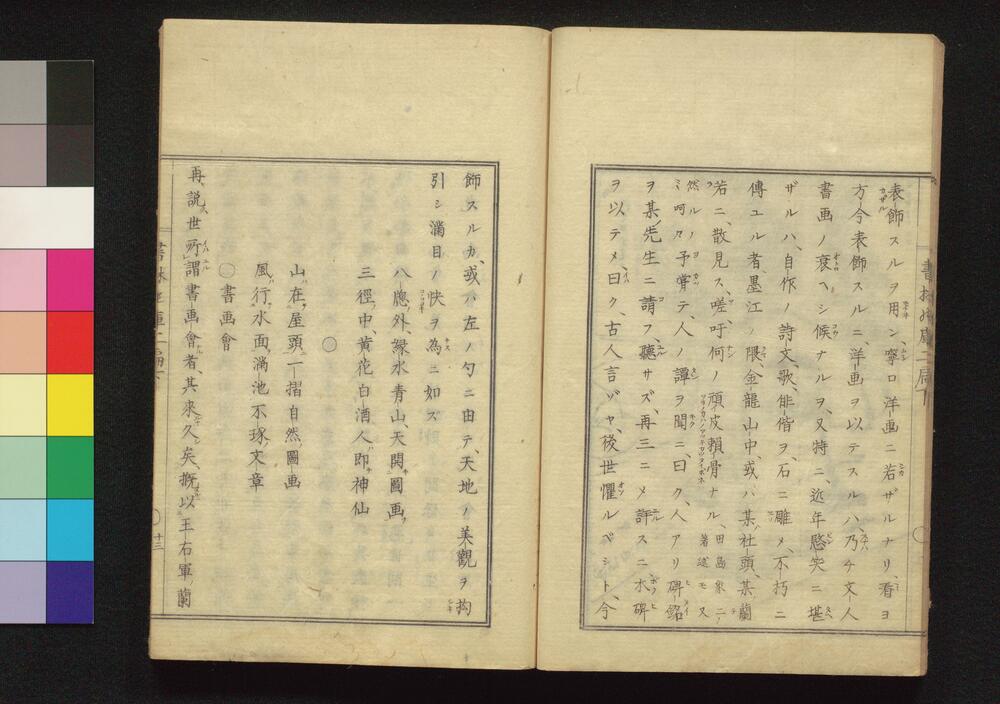 表飾スルヲ用ン、寧ロ洋画ニ若ザルナリ、看ヨ
方今表飾スルニ洋画ヲ以テスルハ、乃チ文人
書画ノ衰ヘシ候ナルヲ、又特ニ、近年愍笑ニ堪
ザルハ、自作ノ詩文、歌、俳偕ヲ、石ニ雕メ、不朽ニ
傳ユル者、墨江ノ隈、金龍山中、或ハ某社頭、某蘭
若ニ、散見ス、嗟吁何ノ頑皮頼骨ナル、田島象二ノ著述モ又
然ルノミ呵々予嘗テ、人ノ譚ヲ聞ニ、曰ク、人アリ碑銘
ヲ某先生ニ請フ聽サズ、再三ニメ許スニ木碑
ヲ以テメ曰ク、古人言ヅヤ、後世懼ルベシト、今
飾スルカ、或ハ左ノ勺ニ由テ、天地ノ美觀ヲ拘
引シ滿目ノ快ヲ為ニ如ズ
八牕外、緑水青山、天開圖画
三徑中、黄花白酒人即神仙
〇
山在屋頭一摺自然圖画
風行水面滿池不琢文章
〇書画會
再説世所謂書画會者、其来久矣、概以王右軍蘭
十三